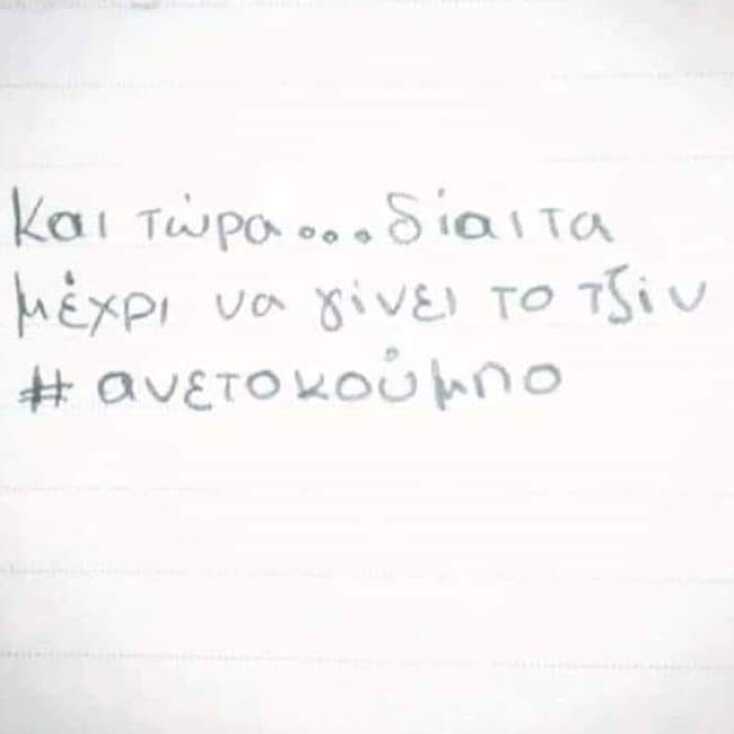 Και τώρα...δίαιτα
μέχρι να γίνει το τζiν
#ανετοκούμπο